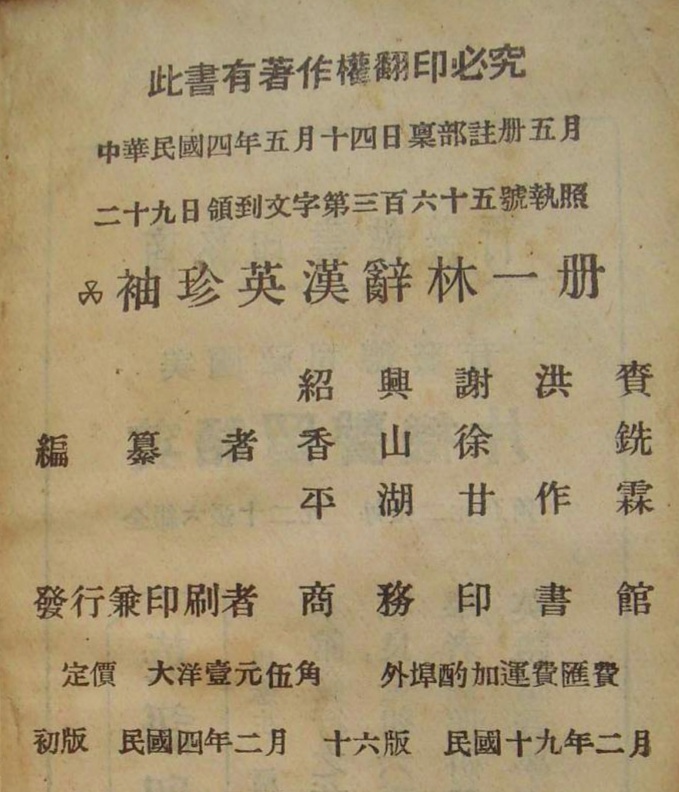 此書有著作權翻印必究
中華民國四年五月十四日稟部註册五月
二十九日領到文字第三百六十五號執照
袖珍英漢辭林一册
紹興謝洪賚
編纂者香山徐銑
平湖甘作霖
發行兼印刷者商務印書館
定價 大洋壹元伍角 外埠酌加運費匯費
初版 民國四年二月 十六版 民國十九年二月